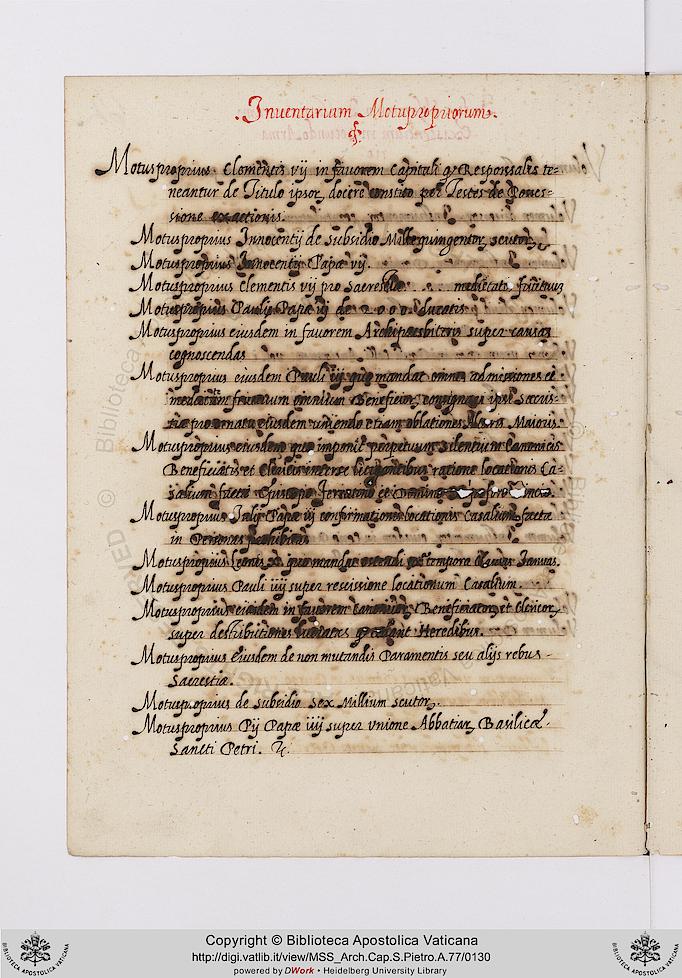 . Inventarium Motuspropriorum .
Motusproprius Clementis vij in favorem Capituli q Responsales te=
neantur de Titulo ipsor docere constito per Testes de Posses=
sione exactionis.
Motusproprius Innocentij de subsidio Mille quingentor scutor
Motusproprius Innocentij Papæ vij.
Motusproprius Clementis vij pro Sacrestia medietatis fructuum
Motusproprius Pauli Papæ iij de 2000 ducatis
Motusproprius eiusdem in favorem Archipresbiteris super causas
cognoscendas
Motusproprius eiusdem Pauli iij quo mandat omnes admissiones et
medietatem fructuum omnium Beneficior consignari ipsi Sacris=
tiæ pro ornatu eiusdem uniendo etiam oblationes Altaris Maioris.
Motusproprius eiusdem quo imponit perpetuum silentium Canonicis
Beneficiatis et Clericis inter se litigantibus ratione locationis Ca=
salium factæ Episcopo et Domino
Motusproprius Julij Papæ iij confirmationis locationis Casalium factæ
in Personas
Motusproprius Leonis X quo mandat ostendi
Motusproprius Pauli iiij super rescissione locationum Casalium.
Motusproprius eiusdem in favorem Canonicor, Beneficiator, et Clericor,
super distributiones Heredibus.
Motusproprius Eiusdem de non mutandis Paramentis seu alijs rebus
Sacrestiæ.
Motusproprius de subsidio sex Millium scutor.
Motusproprius Pij Papæ iiij super Unione Abbatiar Basilicæ
Sancti Petri. &c.
BIBLIOTHECA APOSTOLICA VATICANA
Copyright © Biblioteca Apostolica Vaticana
http://digi.vatlib.it/view/MSS_Arch.Cap.S.Pietro.A.77/0130
powered by DWork • Heidelberg University Library